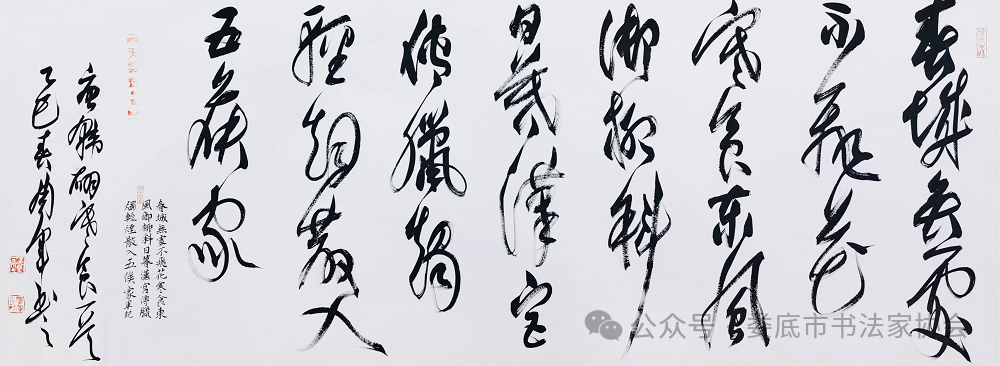 春城無處
不飛花
寒食東風
御柳斜
日暮漢宮
傳臘燭
輕煙散入
五侯家
春城無處不飛花寒食東
風御柳斜日暮漢宮傳臘
燭輕煙散入五侯家軍記
唐韓翃寒食一首
乙巳春軍書
公众号 · 娄底市书法家协会